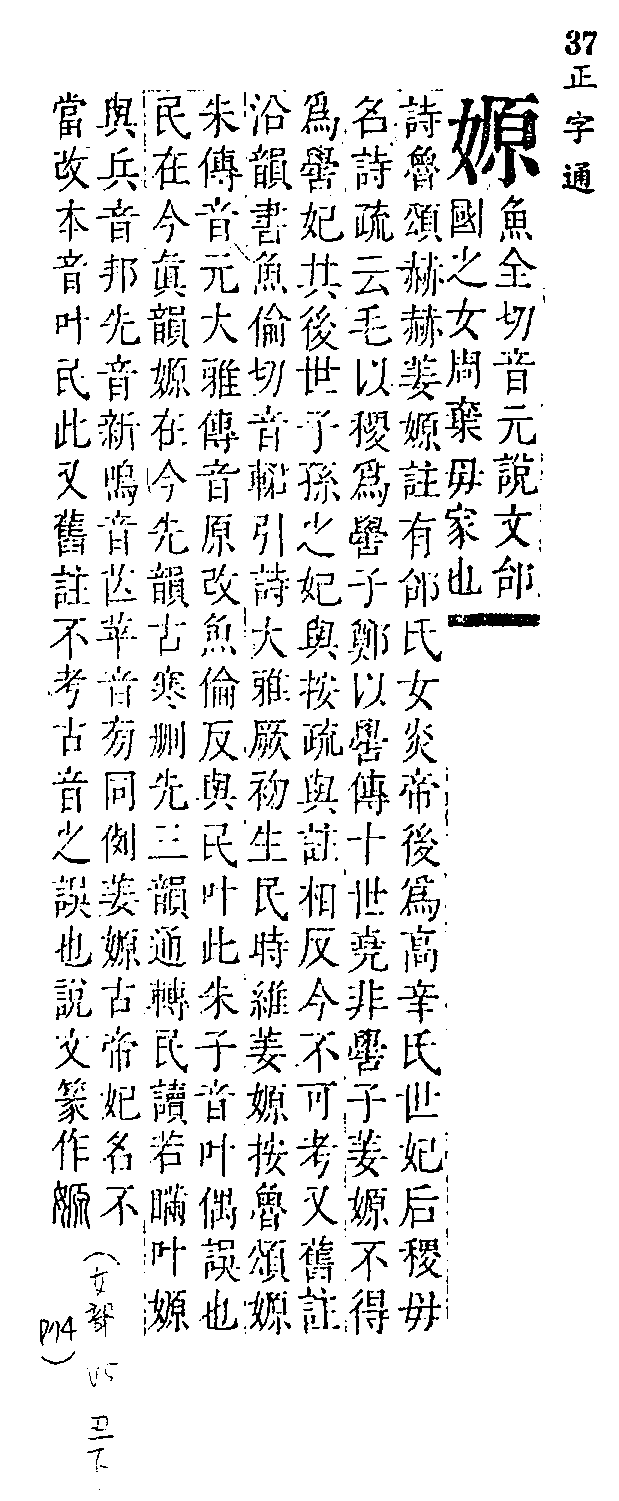 37正字通
嫄
魚全切音元說文邰
國之女周棄毋家也
詩魯頌赫赫姜嫄註有邰氏女炎帝後爲高辛氏世妃后稷毋
名詩疏云毛以稷爲嚳子鄭以嚳傳十世堯非嚳子姜嫄不得
爲嚳妃其後世子孫之妃與按疏與註相反今不可考又舊註
沿韻書魚倫切音輑引詩大雅厥初生民時維姜嫄按魯頌嫄
朱傳音元大雅傳音原改魚倫反與民叶此朱子音叶偶誤也
民在今眞韻嫄在今先韻古寒刪先三韻通轉民讀若瞞叶嫄
與兵音邦先音新鳴音芒苹音旁同例姜嫄古帝妃名不
當改本音叶民此又舊註不考古音之誤也說文篆作嫄
(女部 V5 丑下
P74)